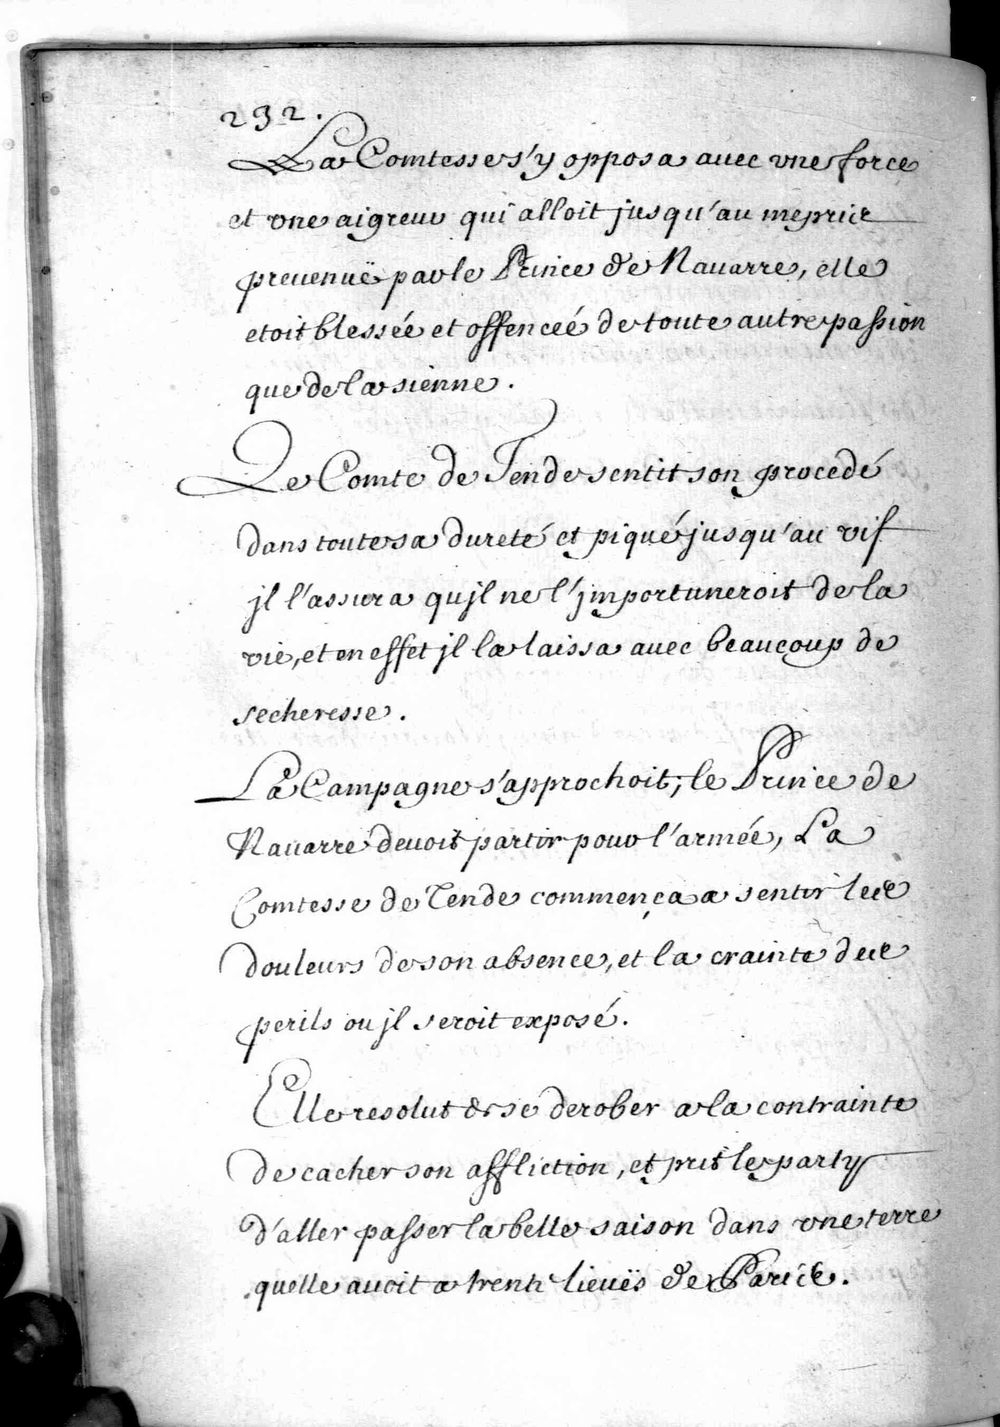 232.
La Comtesse s'y opposa auec vne force
et vne aigreur qui alloit jusqu'au mepris
preuenuë par le Prince de Nauarre, elle
etoit blessée et offenceé de toute autre passion
que de la sienne.
Le Comte de Tende sentit son procedé
dans toute sa dureté et piqué jusqu'au vif
jl l'assura qu jl ne l'jmportuneroit de la
vie, et en effet jl la laissa auec beaucoup de
secheresse.
La Campagne s'approchoit, le Prince de
Nauarre deuoit partir pour l'armée, La
Comtesse de Tende commença a sentir les
douleurs de son absence, et la crainte des
perils ou jl seroit exposé.
Elle resolut de se derober a la contrainte
de cacher son affliction, et prit le party
d'aller passer la belle saison dans vne terre
quelle auoit a trente lieuës de Paris.